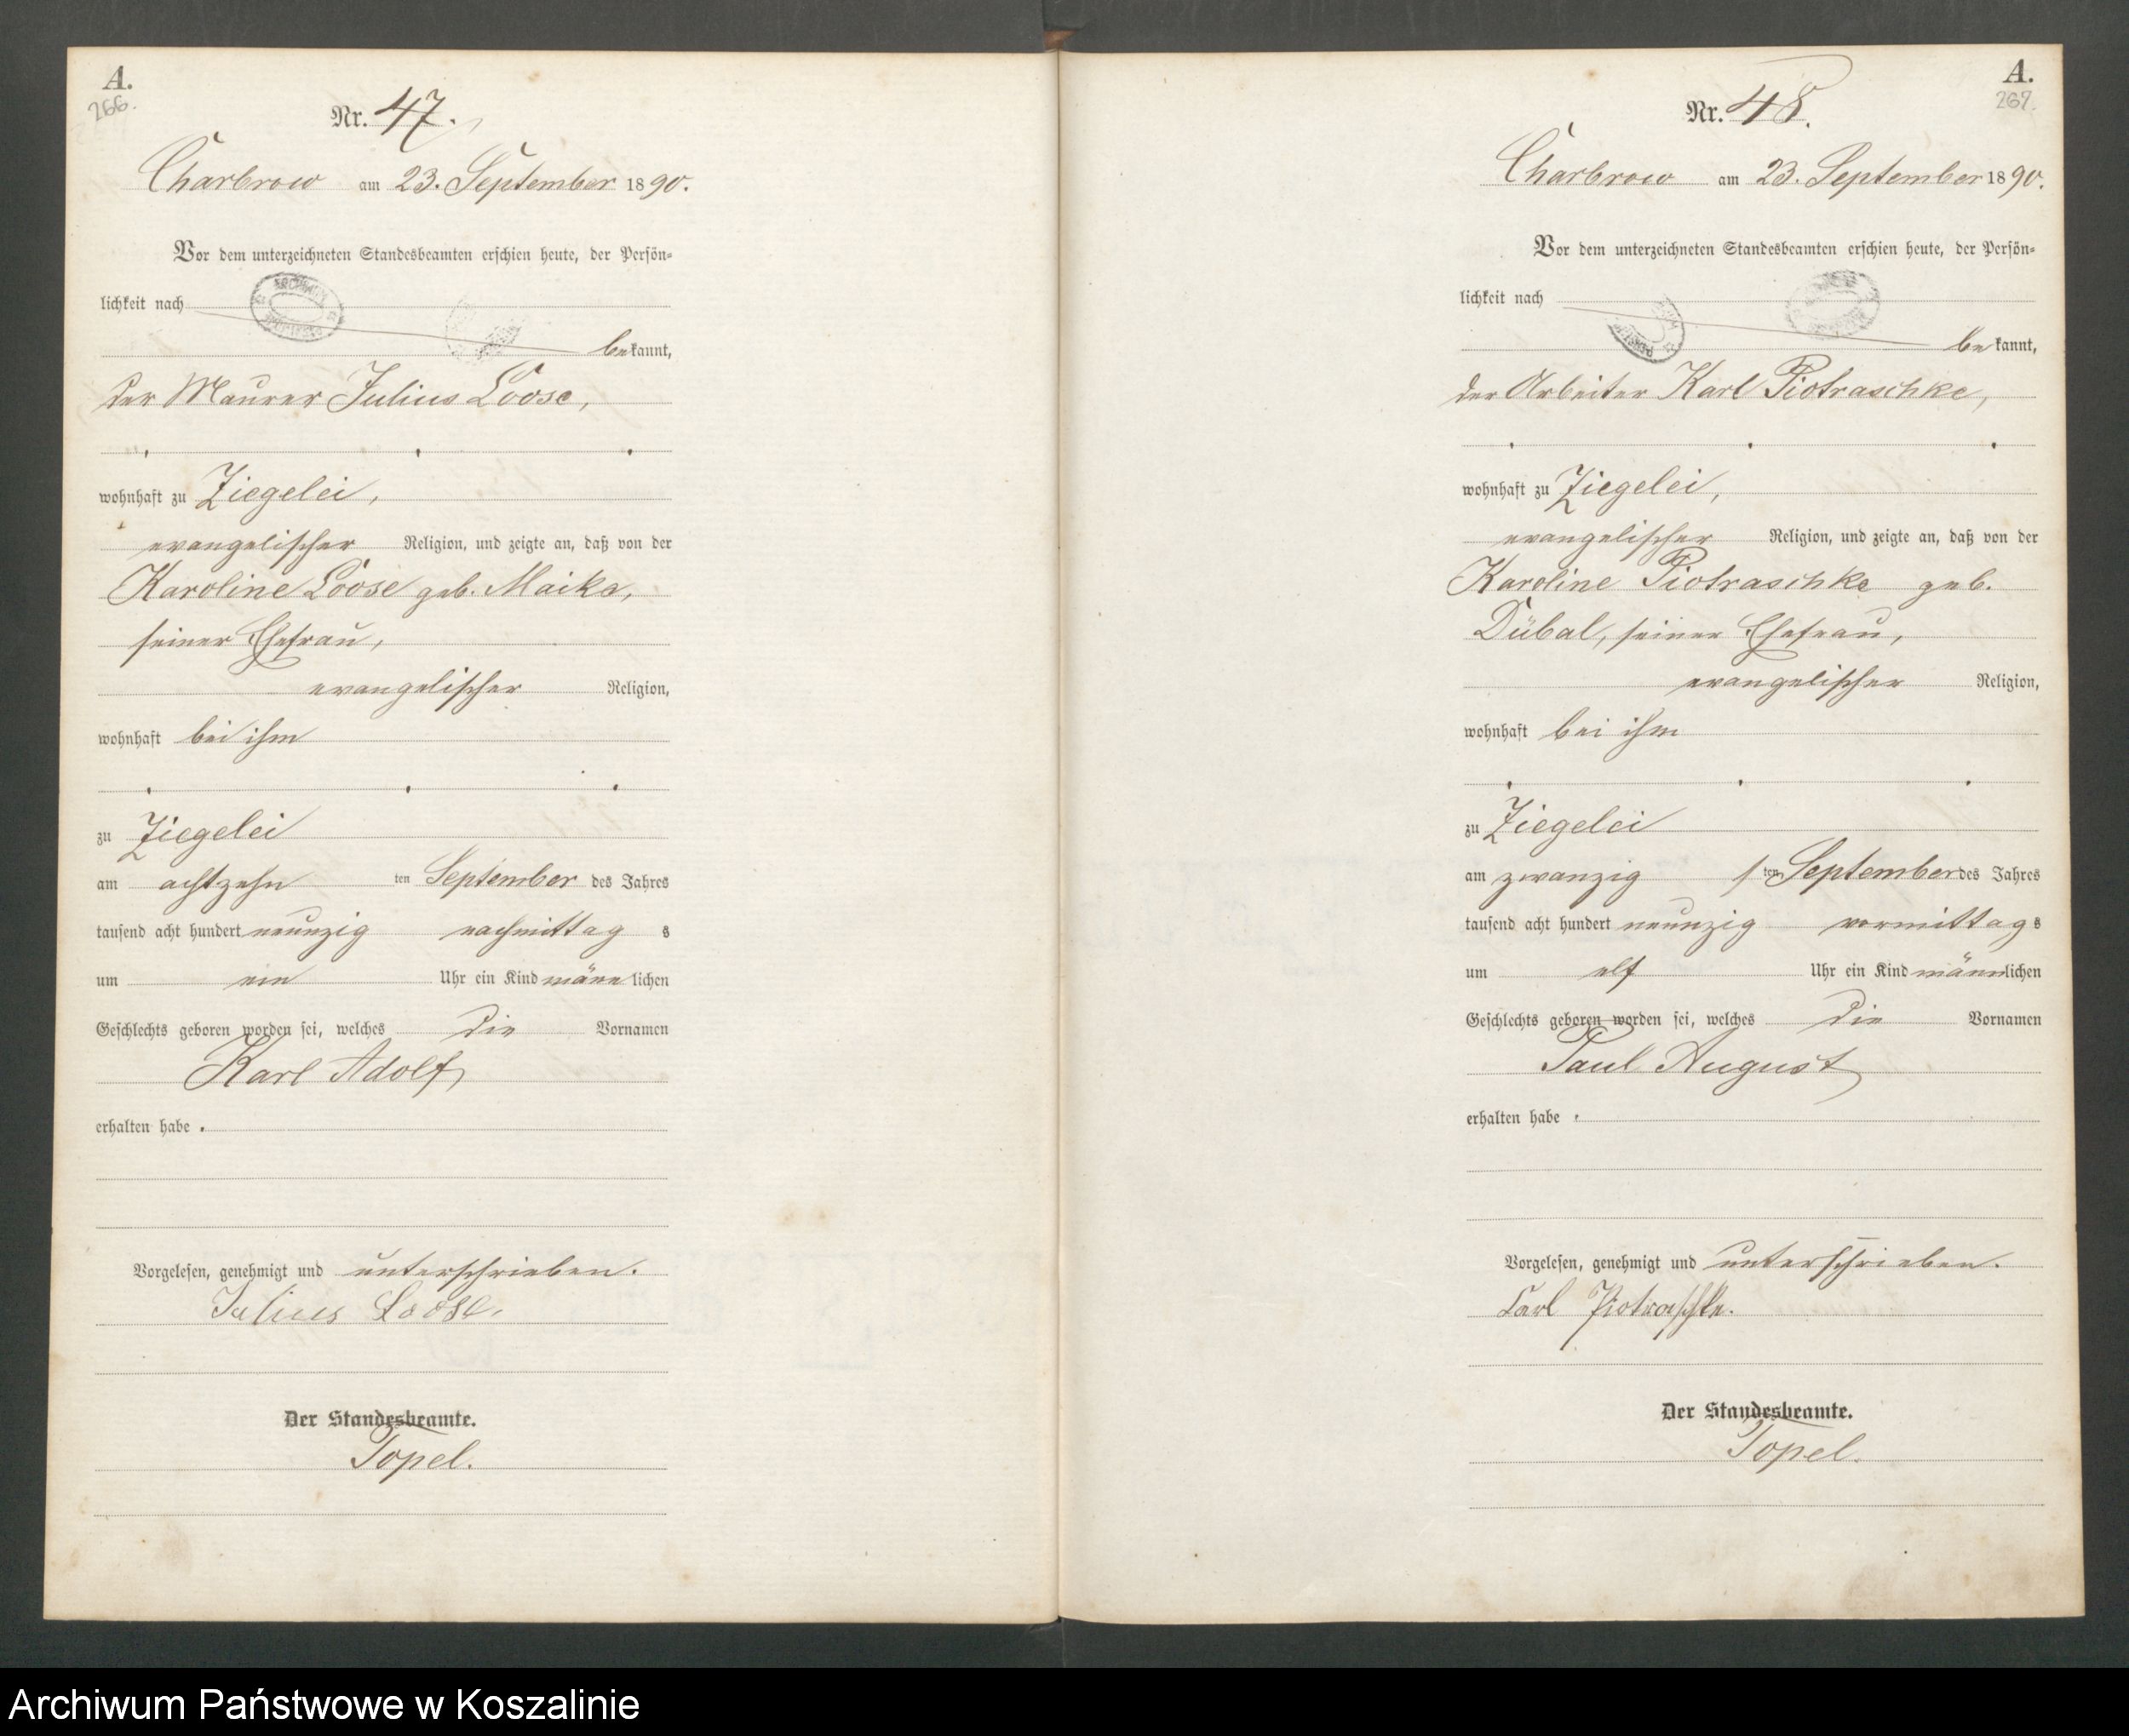 A.
266.
Nr. 47.
Charbrow am 23. September 1890.
Vor dem unterzeichneten Standesbeamten erschien heute, der Persön-
lichkeit nach
bekannt,
der Maurer Julius Loose,
wohnhaft zu Ziegelei,
evangelischer Religion, und zeigte an, daß von der
Karoline Loose geb. Maike,
seiner Ehefrau,
evangelischer Religion,
wohnhaft bei ihm
zu Ziegelei
am achtzehn ten September des Jahres
tausend acht hundert neunzig nachmittag s
um ein Uhr ein Kind männlichen
Geschlechts geboren worden sei, welches die Vornamen
Karl Adolf
erhalten habe.
Vorgelesen, genehmigt und unterschrieben.
Julius Loose.
Der Standesbeamte.
Topel.
A.
267.
Nr. 48.
Charbrow am 23. September 1890.
Vor dem unterzeichneten Standesbeamten erschien heute, der Persön-
lichkeit nach
bekannt,
der Arbeiter Karl Piotraschke,
wohnhaft zu Ziegelei,
evangelischer Religion, und zeigte an, daß von der
Karoline Piotraschke geb.
Dübal, seiner Ehefrau,
evangelischer Religion,
wohnhaft bei ihm
zu Ziegelei
am zwanzig ten September des Jahres
tausend acht hundert neunzig vormittags
um elf Uhr ein Kind männlichen
Geschlechts geboren worden sei, welches die Vornamen
Paul August
erhalten habe.
Vorgelesen, genehmigt und unterschrieben.
Carl Piotraschke.
Der Standesbeamte.
Topel.
Archiwum Państwowe w Koszalinie